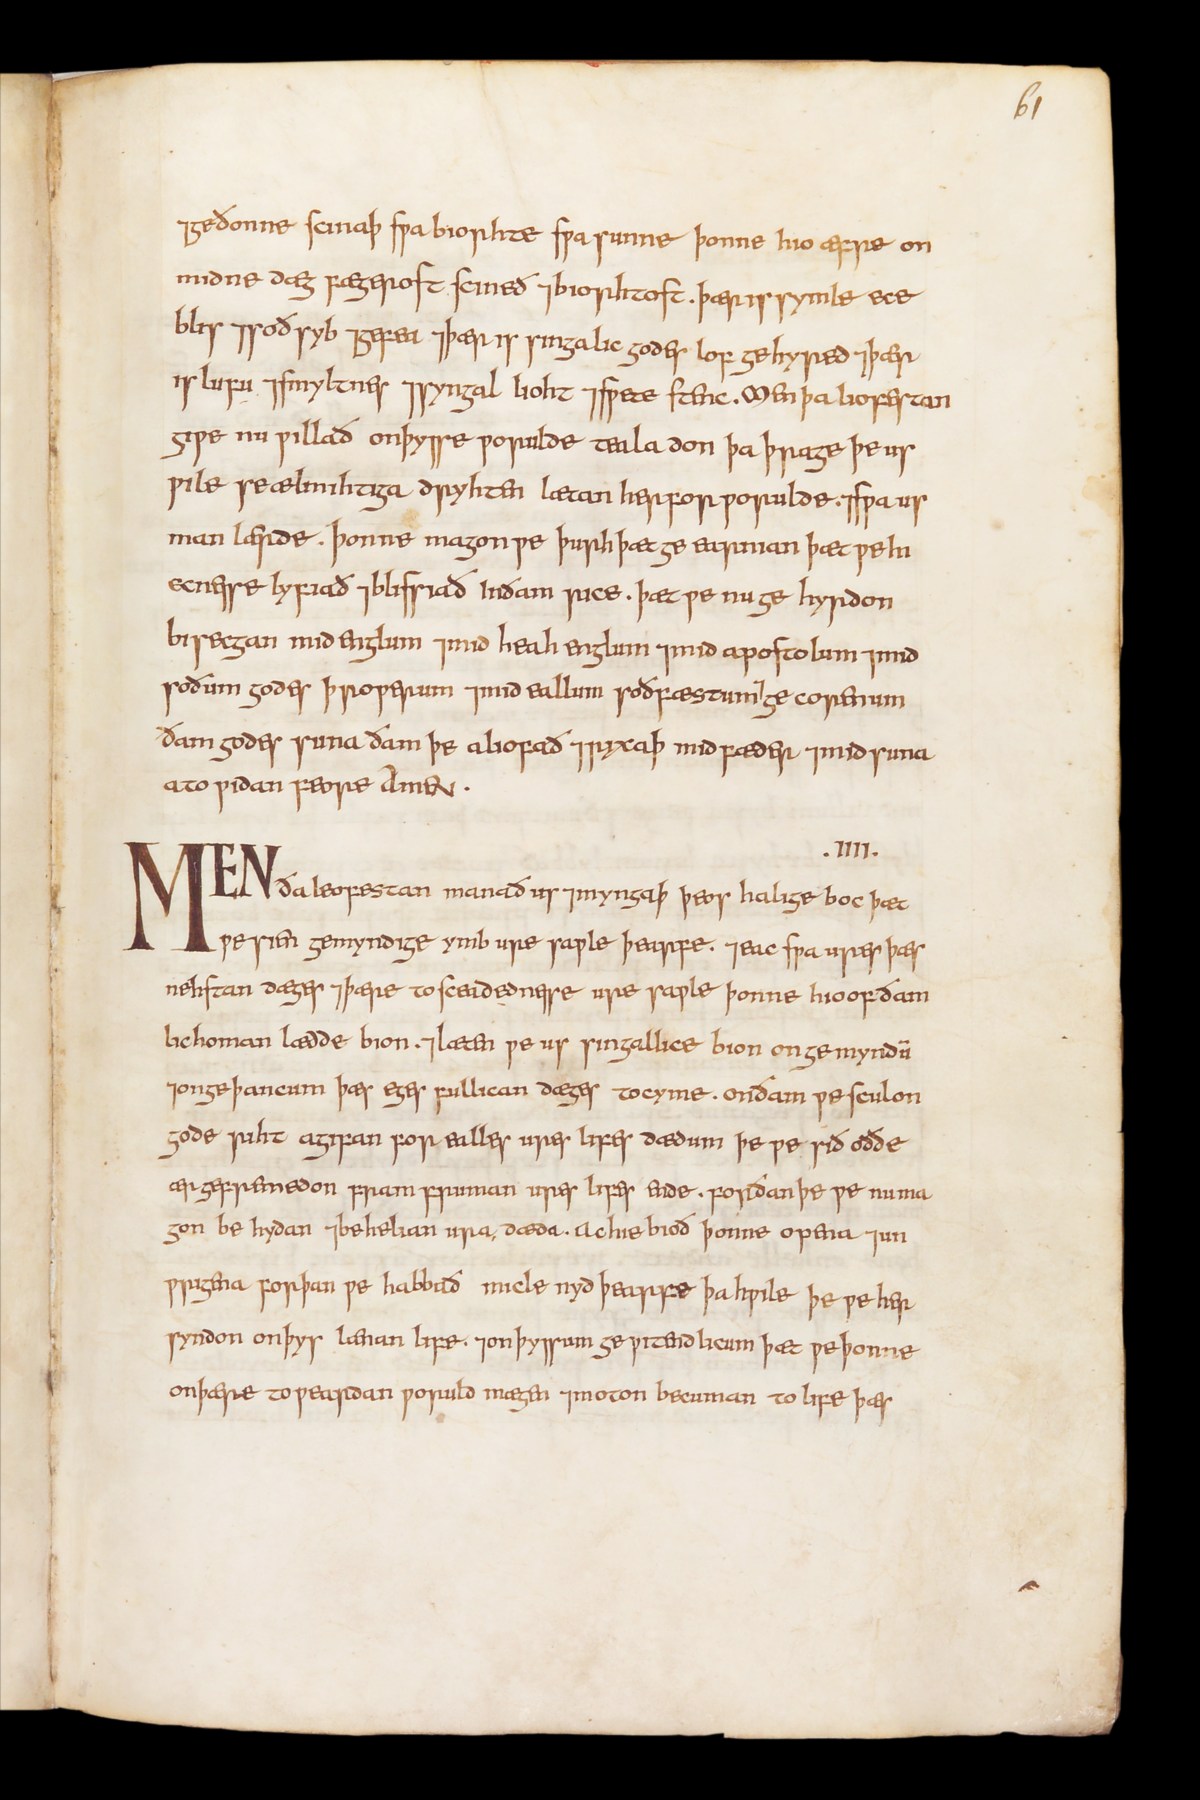 61
⁊geðonne scinaþ swa biorhte swa sunne þonne hio æfre on
midne dæg fægerost scineð ⁊biorhtost. þær is symle ece
blis ⁊soð syb ⁊gefea ⁊þær is singalic godes lof gehyred ⁊þær
is lufu ⁊smyltnes ⁊syngal lioht ⁊swete stenc. Men þa liofestan
gif we nu willað onþysse worulde teala don þa þrage þe us
wile se ælmihtiga dryhten lætan her for worulde. ⁊swa us
man lærde. þonne magon we þurh þæt ge earnian þæt we in
ecnesse lyfiað ⁊blissiað Inðam rice. þæt we nu ge hyrdon
bi secgan mid englum ⁊mid heah englum ⁊mid apostolum ⁊mid
soðum godes þrowerum ⁊mid eallum soðfæstum ⁊ge corenum
ðam godes suna ðam þe a liofað ⁊rixaþ mid fæder ⁊mid suna
a to widan feore Amen.
.IIII.
MEN ða leofestan manað us ⁊myngaþ þeos halige boc þæt
we sien gemyndige ymb ure sawle þearfe. ⁊eac swa ures þæs
nehstan dæges ⁊þære tosceadednesse ure sawle þonne hio of ðam
lichoman lædde bion. ⁊læten we us singallice bion on ge myndū
⁊on geþancum þæs eges fullican dæges tocyme. on ðam we sculon
gode riht agifan for ealles ures lifes dædum þe we sið oððe
ær gefremedon fram fruman ures lifes ende. forðan þe we nu ma
gon be hydan ⁊behelian ura dæda. Ac hie bioð þonne opena ⁊un
wrigena for þan we habbað micle nyd þearfe þa hwile þe we her
syndon on þys lænan life. ⁊on þyssum ge witendlicum þæt we þonne
on þære to weardan woruld mægen ⁊moton becuman to life þæs